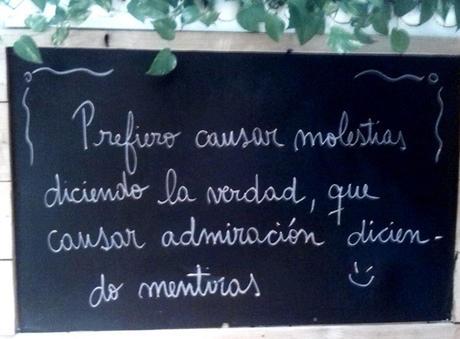 Prefiero causar molestias
diciendo la verdad, que
causar admiración dicien-
do mentiras